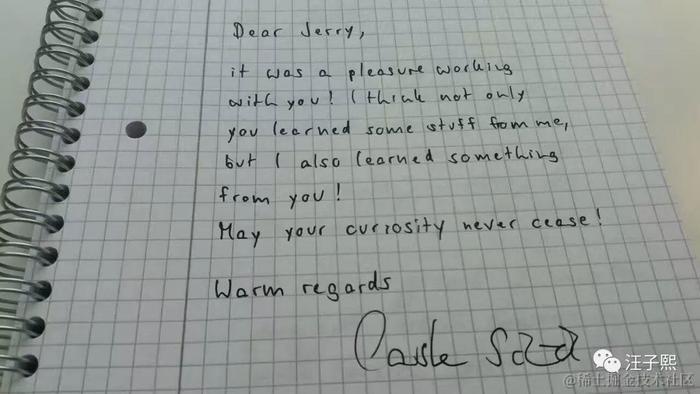 Dear Jerry,
it was a pleasure working
with you! I think not only
you learned some stuff from me,
but I also learned something
from you!
May your curiosity never cease!
Warm regards
汪子熙
@稀土掘金技术社区